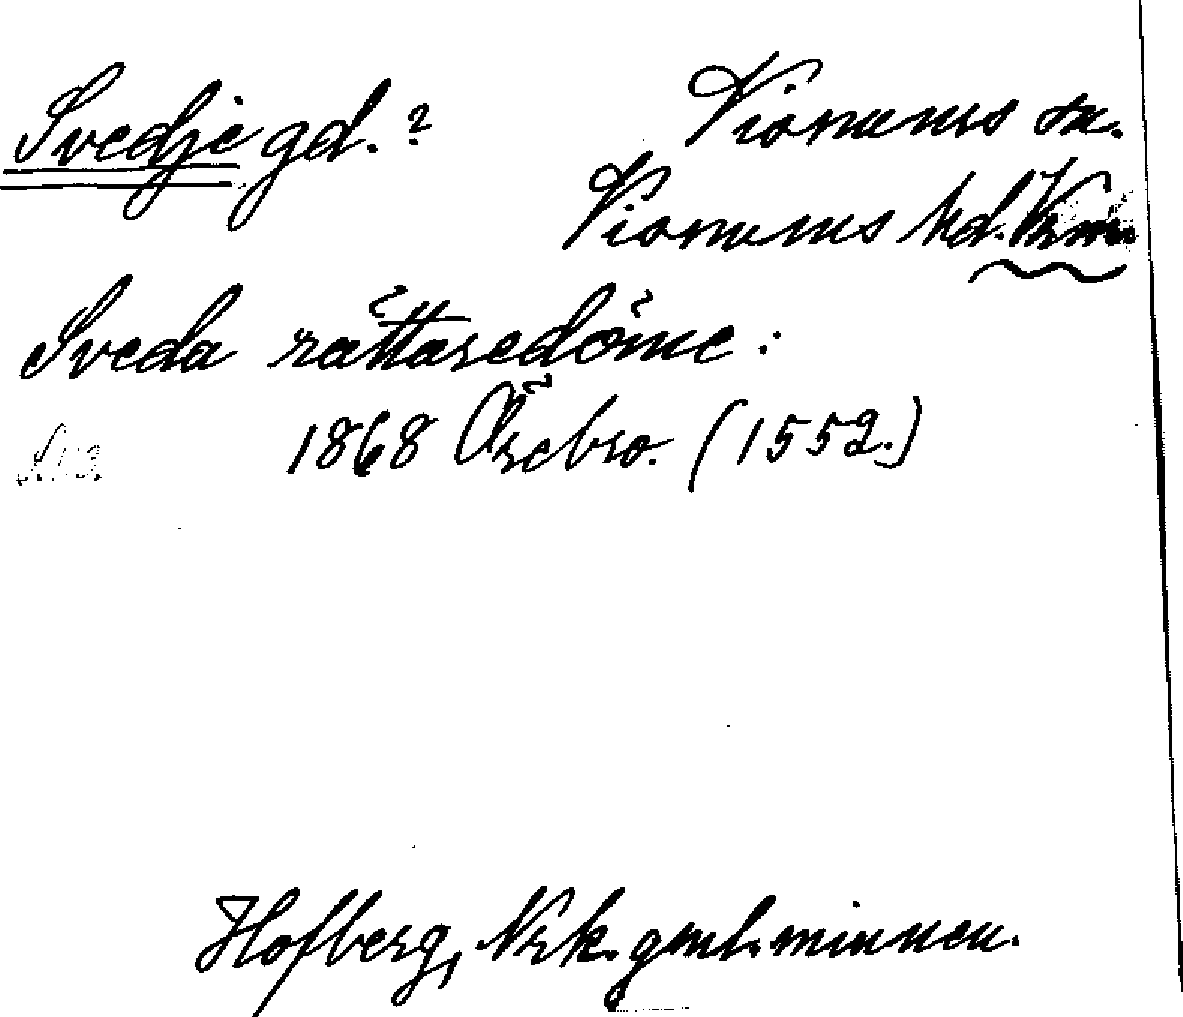 Svedje gd.?
Visnums sn.
Visnums hd. Vrml
Sveda rättaredöme:
1868 Örebro. (1552.)
Hofberg, Nrk. gml. minnen.